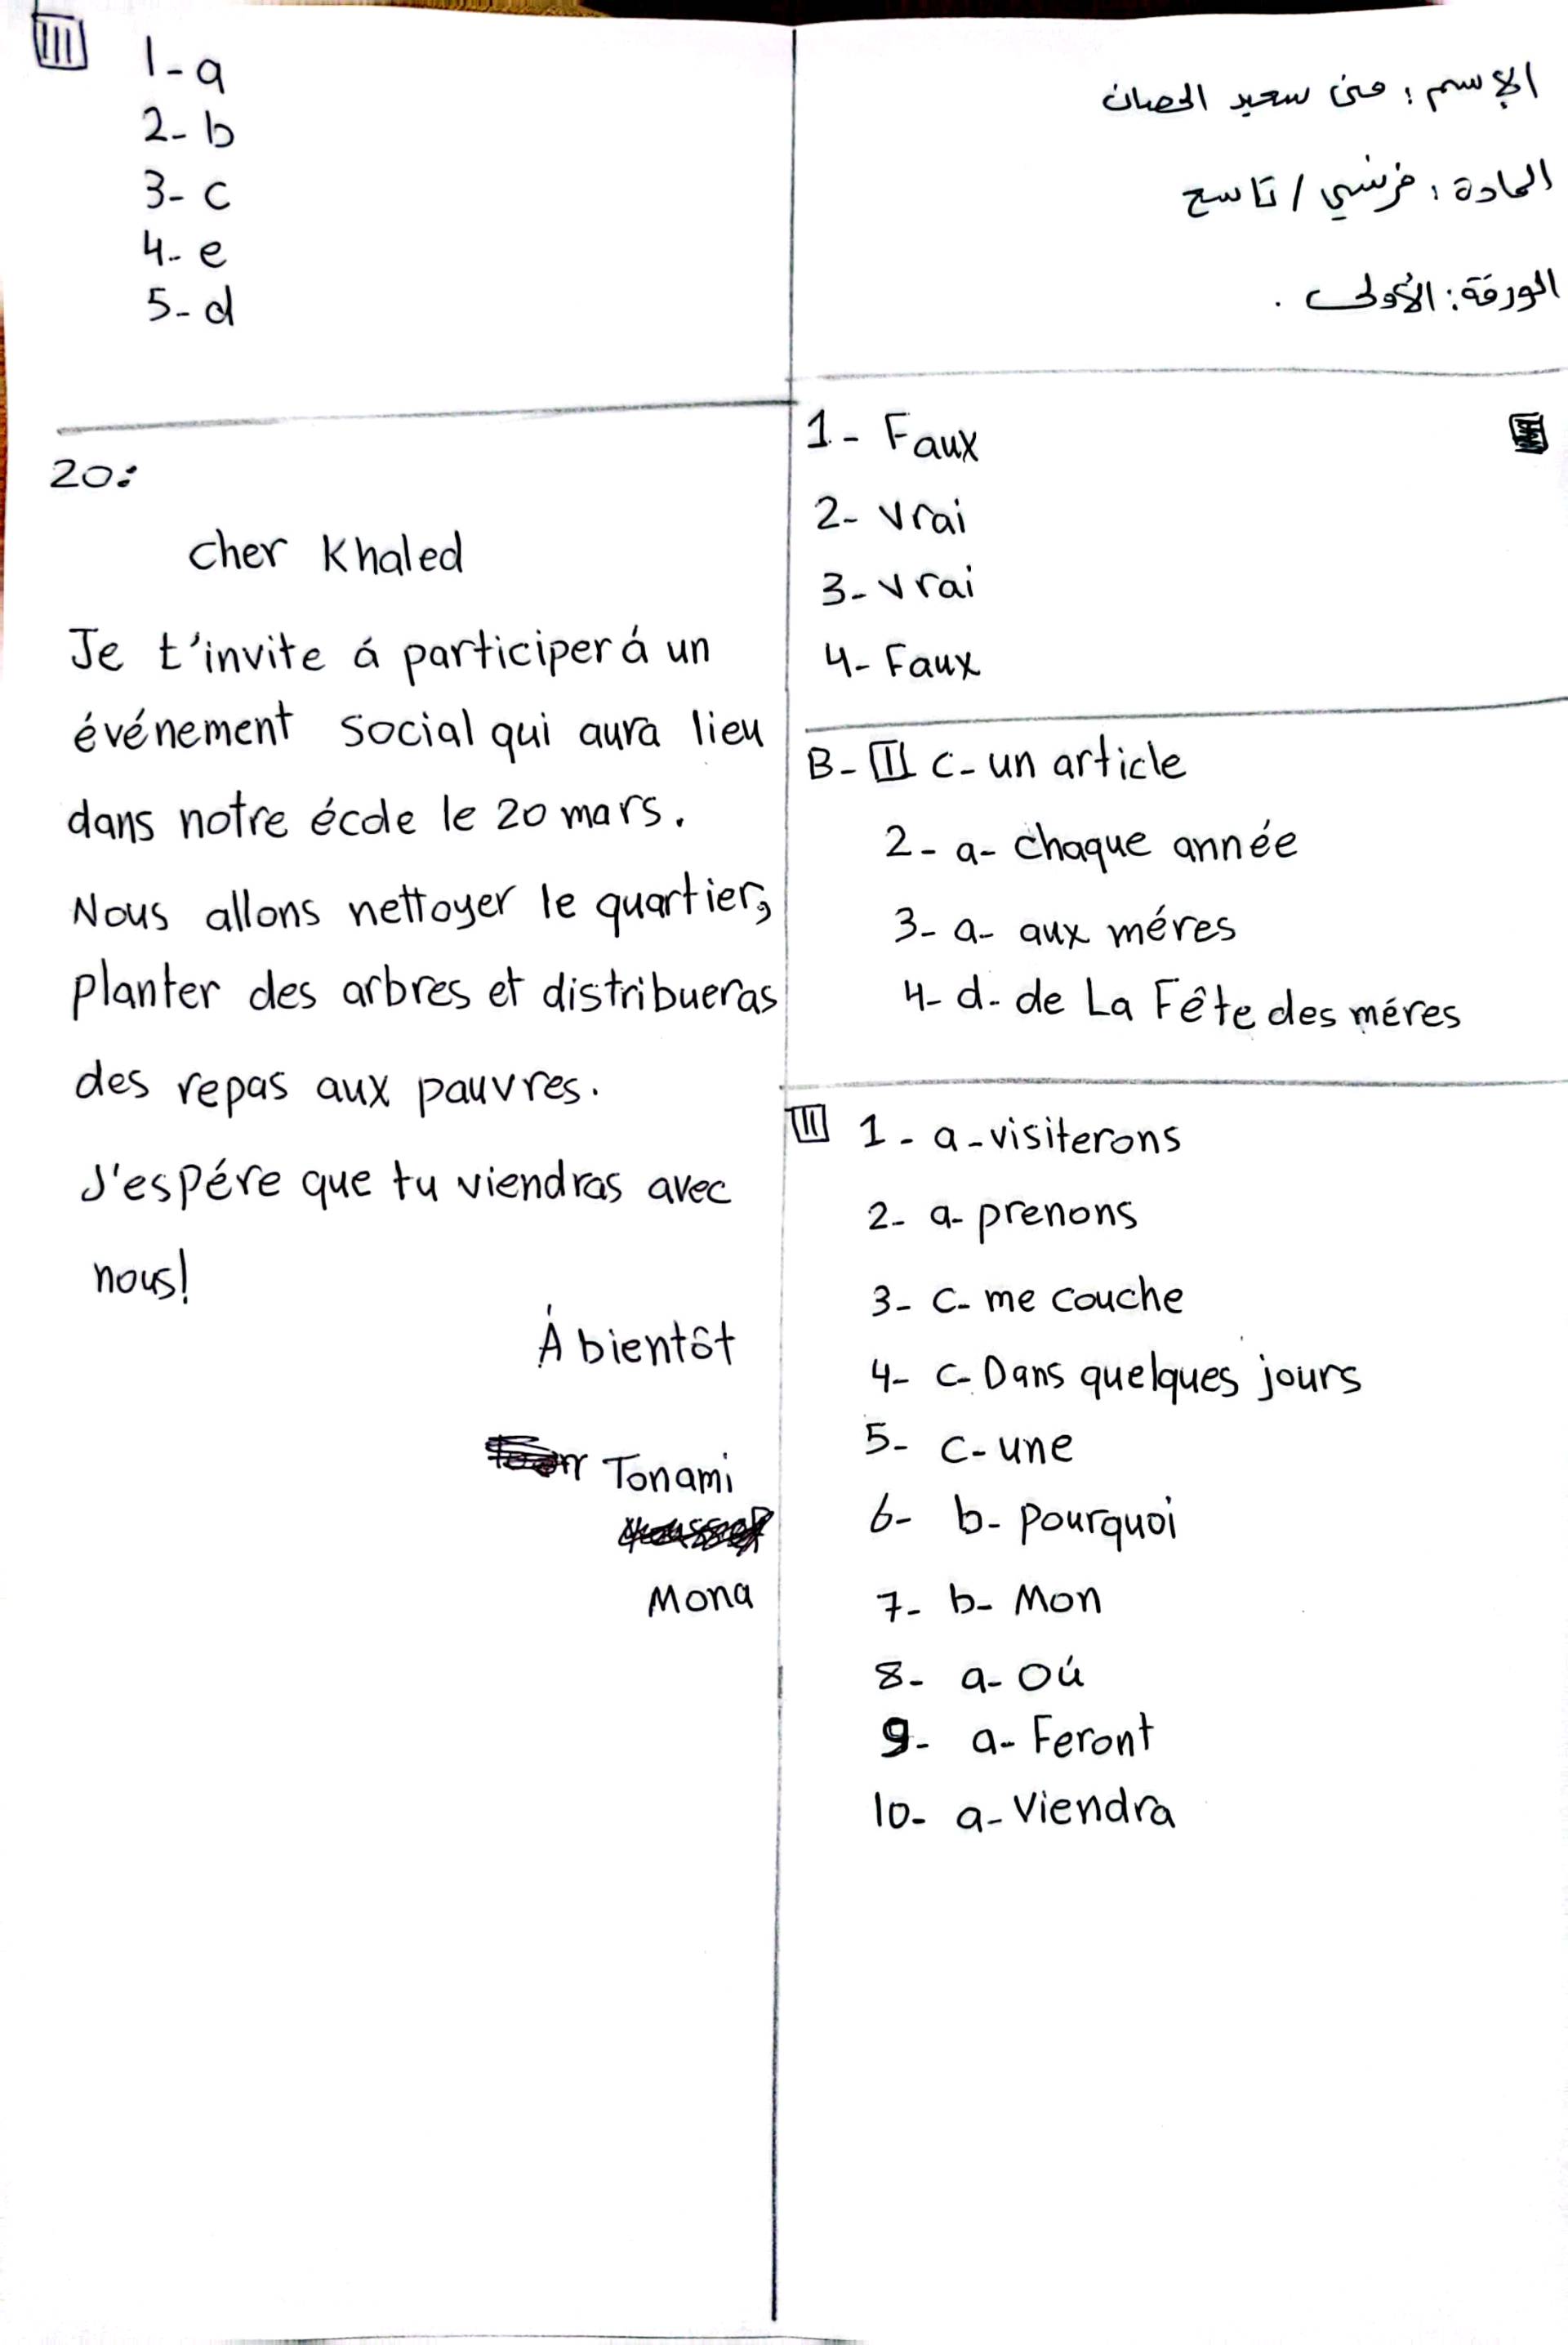 الإسم: منى سعيد الحصان
المادة: فرنسي / تاسع
الورقة: الأولى.
1- Faux
2- Vrai
3- Vrai
4- Faux
B- II c- un article
2- a- chaque année
3- a- aux méres
4- d- de La Fête des méres
III 1- a- visiterons
2- a- prenons
3- c- me couche
4- c- Dans quelques jours
5- c- une
6- b- pourquoi
7- b- Mon
8- a- Oú
9- a- Feront
10- a- Viendra
III 1- a
2- b
3- c
4- e
5- d
20:
cher Khaled
Je t'invite á participer á un
événement social qui aura lieu
dans notre école le 20 mars.
Nous allons nettoyer le quartier,
planter des arbres et distribueras
des repas aux pauvres.
J'espére que tu viendras avec
nous!
Á bientôt
Tonami
Mona